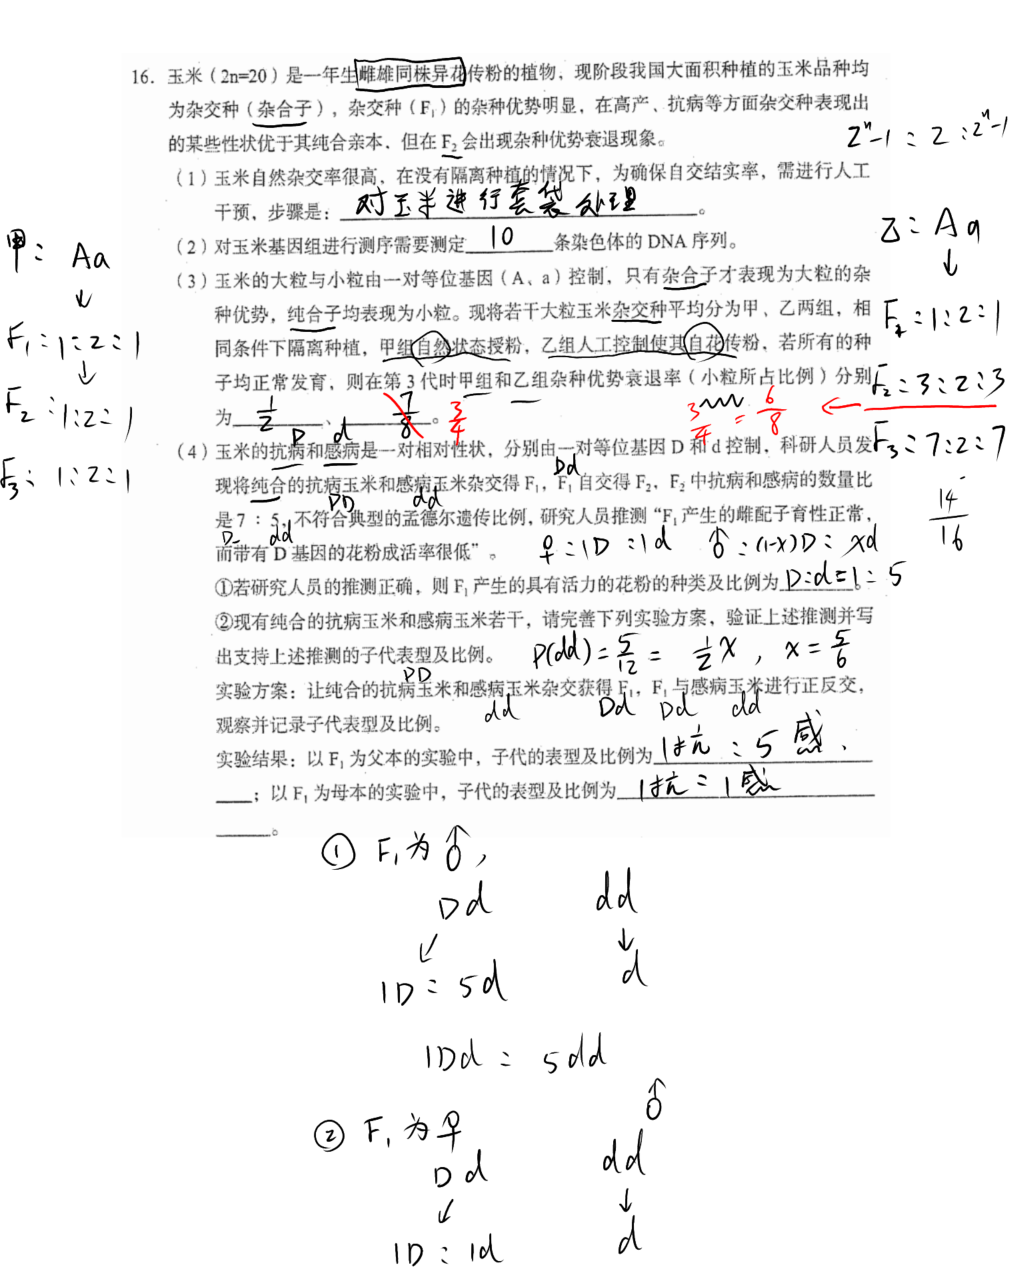 16. 玉米（2n=20）是一年生雌雄同株异花传粉的植物，现阶段我国大面积种植的玉米品种均
为杂交种（杂合子），杂交种（F₁）的杂种优势明显，在高产、抗病等方面杂交种表现出
的某些性状优于其纯合亲本，但在 F₂ 会出现杂种优势衰退现象。
2ⁿ-1 : 2 : 2ⁿ-1
（1）玉米自然杂交率很高，在没有隔离种植的情况下，为确保自交结实率，需进行人工
干预，步骤是：对玉米进行套袋处理。
（2）对玉米基因组进行测序需要测定 10 条染色体的 DNA 序列。
（3）玉米的大粒与小粒由一对等位基因（A、a）控制，只有杂合子才表现为大粒的杂
种优势，纯合子均表现为小粒。现将若干大粒玉米杂交种平均分为甲、乙两组，相
同条件下隔离种植，甲组自然状态授粉，乙组人工控制使其自花传粉，若所有的种
子均正常发育，则在第 3 代时甲组和乙组杂种优势衰退率（小粒所占比例）分别
为 1/2 、 7/8 。 3/4
3/4 = 6/8
甲: Aa
↓
F₁: 1:2:1
↓
F₂: 1:2:1
F₃: 1:2:1
乙: Aa
↓
F₂: 1:2:1
F₂: 3:2:3
F₃: 7:2:7
14/16
D d
（4）玉米的抗病和感病是一对相对性状，分别由一对等位基因 D 和 d 控制，科研人员发
Dd
现将纯合的抗病玉米和感病玉米杂交得 F₁，F₁ 自交得 F₂，F₂ 中抗病和感病的数量比
DD dd
是 7∶5，不符合典型的孟德尔遗传比例，研究人员推测“F₁ 产生的雌配子育性正常，
D- dd
而带有 D 基因的花粉成活率很低”。 ♀: 1D : 1d ♂: (1-x)D : xd
①若研究人员的推测正确，则 F₁ 产生的具有活力的花粉的种类及比例为 D:d=1:5 。
②现有纯合的抗病玉米和感病玉米若干，请完善下列实验方案，验证上述推测并写
出支持上述推测的子代表型及比例。 P(dd) = 5/12 = 1/2 x , x = 5/6
DD
实验方案：让纯合的抗病玉米和感病玉米杂交获得 F₁，F₁ 与感病玉米进行正反交，
dd Dd Dd dd
观察并记录子代表型及比例。
实验结果：以 F₁ 为父本的实验中，子代的表型及比例为 1抗 : 5感
；以 F₁ 为母本的实验中，子代的表型及比例为 1抗 : 1感
。
① F₁ 为 ♂,
Dd dd
↙ ↓
1D : 5d d
1Dd : 5dd
♂
② F₁ 为 ♀
Dd dd
↙ ↓
1D : 1d d